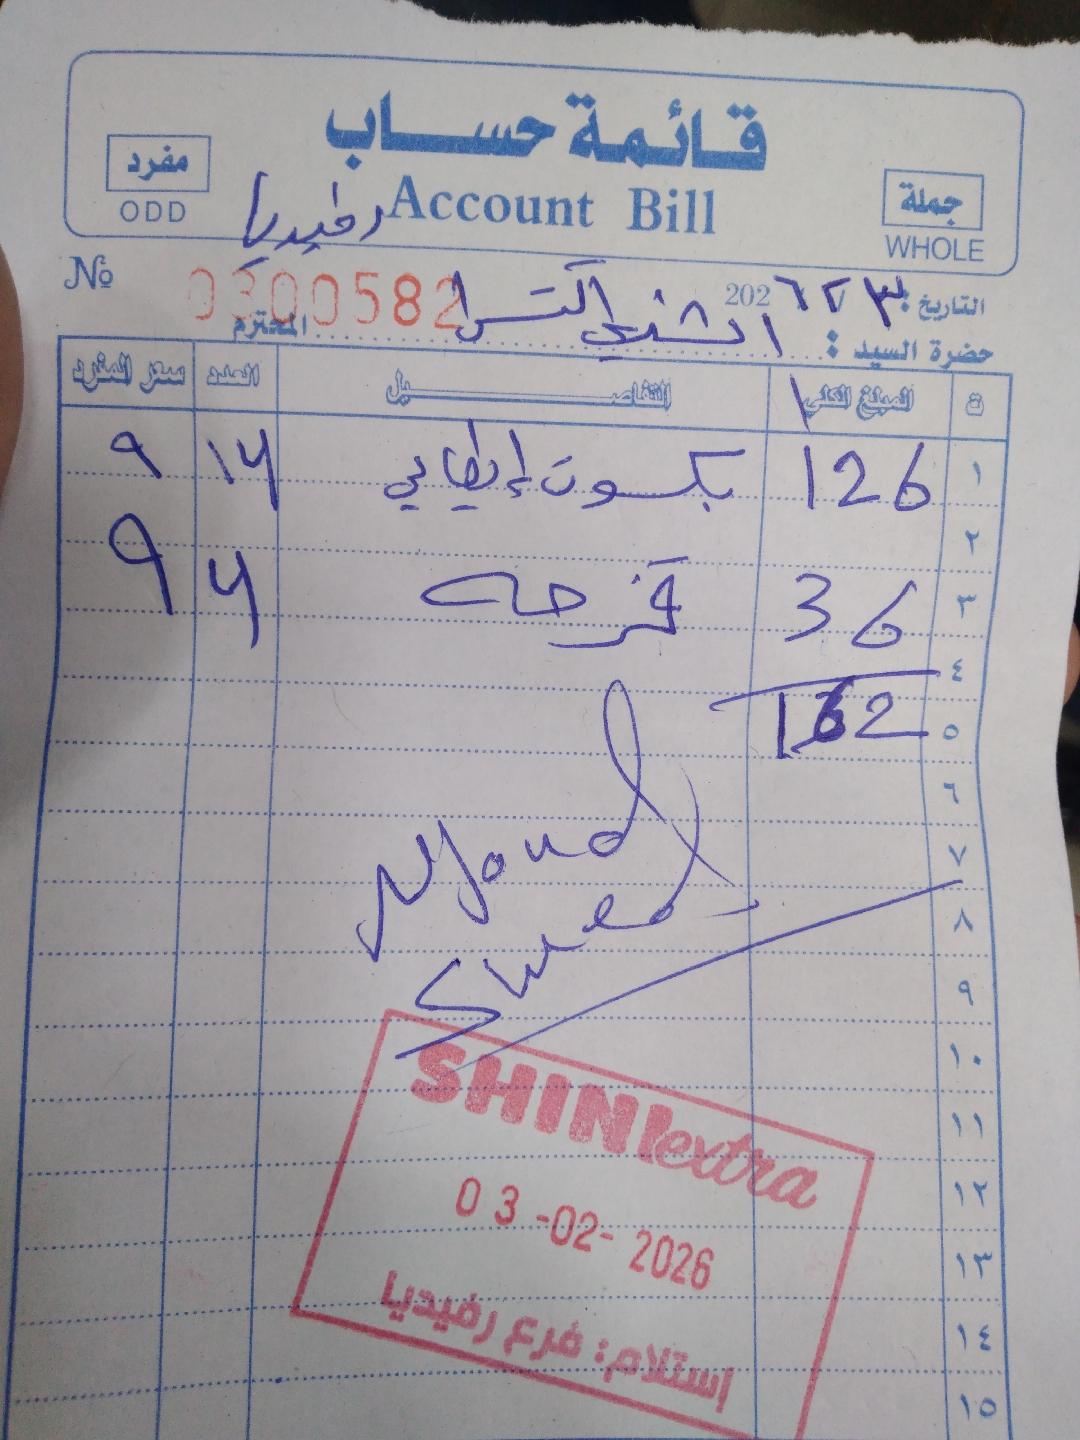 قائمة حساب
Account Bill
جملة
WHOLE
مفرد
ODD
رفيديا
№ 0300582
التاريخ: ٣ / ٢ / 202٦
حضرة السيد : الشني اكسترا المحترم
ت المبلغ الكلي التفاصيل العدد سعر المفرد
١ 126 بكسوت إيطالي ١٤ ٩
٢
٣ 36 قزحه ٤ 9
٤
٥ 162
٦
٧
٨
٩
١٠
١١
١٢
١٣
١٤
١٥
SHINI extra
03-02-2026
إستلام: فرع رفيديا